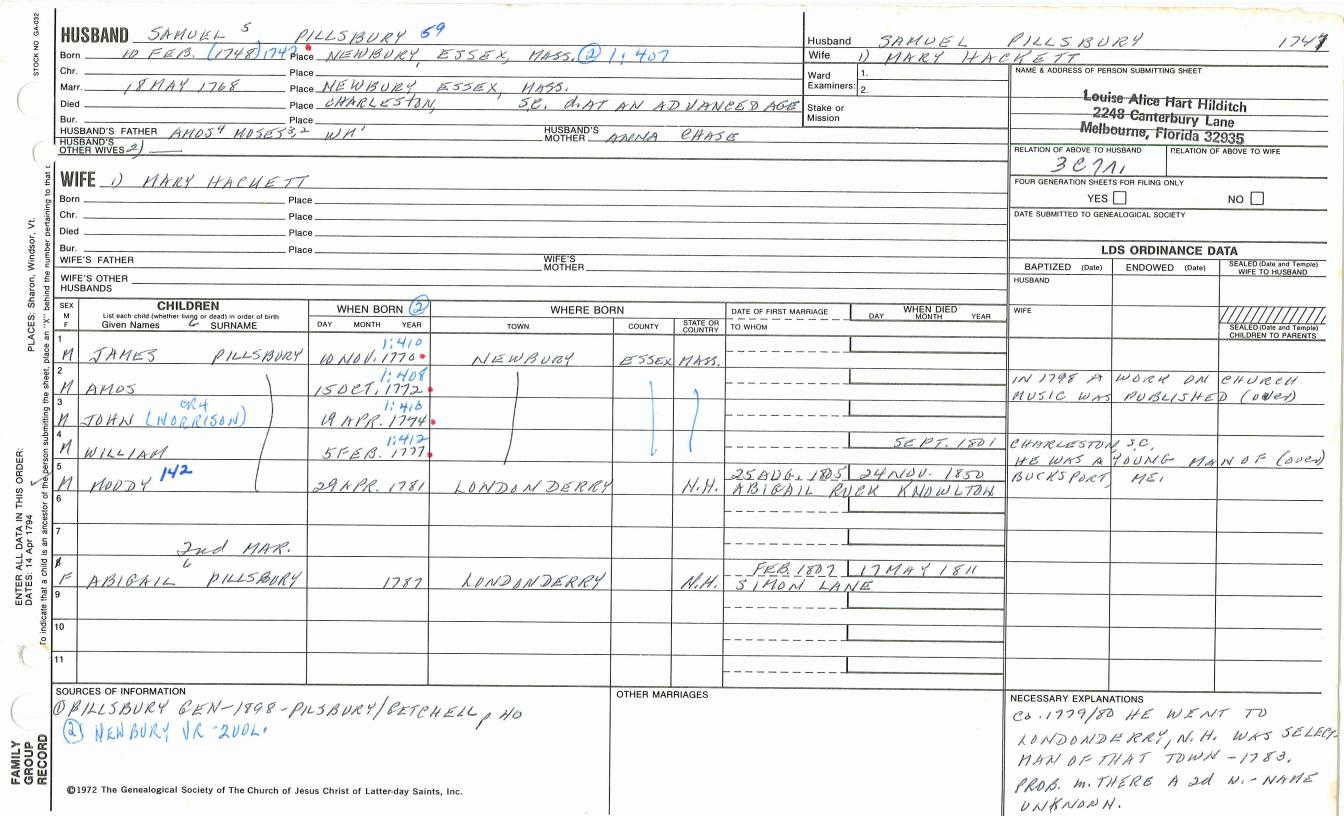 STOCK NO. GA-032
HUSBAND SAMUEL 5 PILLSBURY 59
Born 10 FEB. (1748) 1747 Place NEWBURY, ESSEX, MASS. ② 1:407
Chr. Place
Marr. 18 MAY 1768 Place NEWBURY ESSEX, MASS.
Died Place CHARLESTON, S.C. d. AT AN ADVANCED AGE
Bur. Place
HUSBAND'S FATHER AMOS4 MOSES3,2 WM1 HUSBAND'S MOTHER ANNA CHASE
HUSBAND'S OTHER WIVES 2)
Husband SAMUEL PILLSBURY 1747
Wife 1) MARY HACKETT
Ward Examiners: 1. 2.
Stake or Mission
NAME & ADDRESS OF PERSON SUBMITTING SHEET
Louise Alice Hart Hilditch
2248 Canterbury Lane
Melbourne, Florida 32935
RELATION OF ABOVE TO HUSBAND RELATION OF ABOVE TO WIFE
FOUR GENERATION SHEETS FOR FILING ONLY
YES NO
DATE SUBMITTED TO GENEALOGICAL SOCIETY
WIFE 1) MARY HACKETT
Born Place
Chr. Place
Died Place
Bur. Place
WIFE'S FATHER WIFE'S MOTHER
WIFE'S OTHER HUSBANDS
LDS ORDINANCE DATA
BAPTIZED (Date) ENDOWED (Date) SEALED (Date and Temple) WIFE TO HUSBAND
HUSBAND
WIFE
SEALED (Date and Temple) CHILDREN TO PARENTS
SEX M F
CHILDREN
List each child (whether living or dead) in order of birth
Given Names SURNAME
WHEN BORN ②
DAY MONTH YEAR
WHERE BORN
TOWN COUNTY STATE OR COUNTRY
DATE OF FIRST MARRIAGE
TO WHOM
WHEN DIED
DAY MONTH YEAR
1 1:410
M JAMES PILLSBURY 10 NOV. 1770 NEWBURY ESSEX MASS.
2 1:408
M AMOS 15 OCT. 1772 IN 1798 A WORK ON CHURCH MUSIC WAS PUBLISHED (over)
3 OR 4 1:410
M JOHN (NORRISON) 19 APR. 1774
4 1:412
M WILLIAM 5 FEB. 1777 SEPT. 1801 CHARLESTON, S.C. HE WAS A YOUNG MAN OF (over)
5 142
M MOODY 29 APR. 1781 LONDONDERRY N.H. 25 AUG. 1805 24 NOV. 1850 BUCKSPORT, ME.
ABIGAIL RUCK KNOWLTON
6
7 2nd MAR.
8 FEB. 1807 17 MAY 1811
F ABIGAIL PILLSBURY 1787 LONDONDERRY N.H. SIMON LANE
9
10
11
SOURCES OF INFORMATION
① PILLSBURY GEN-1898-PILSBURY/GETCHELL, p 40
② NEWBURY VR-2VOL.
OTHER MARRIAGES
NECESSARY EXPLANATIONS
Ca. 1779/80 HE WENT TO
LONDONDERRY, N.H. WAS SELECT-
MAN OF THAT TOWN - 1783.
PROB. m. THERE A 2d W. - NAME
UNKNOWN.
©1972 The Genealogical Society of The Church of Jesus Christ of Latter-day Saints, Inc.
FAMILY GROUP RECORD
ENTER ALL DATA IN THIS ORDER:
DATES: 14 Apr 1794
PLACES: Sharon, Windsor, Vt.
To indicate that a child is an ancestor of the person submitting the sheet, place an "X" behind the number pertaining to that